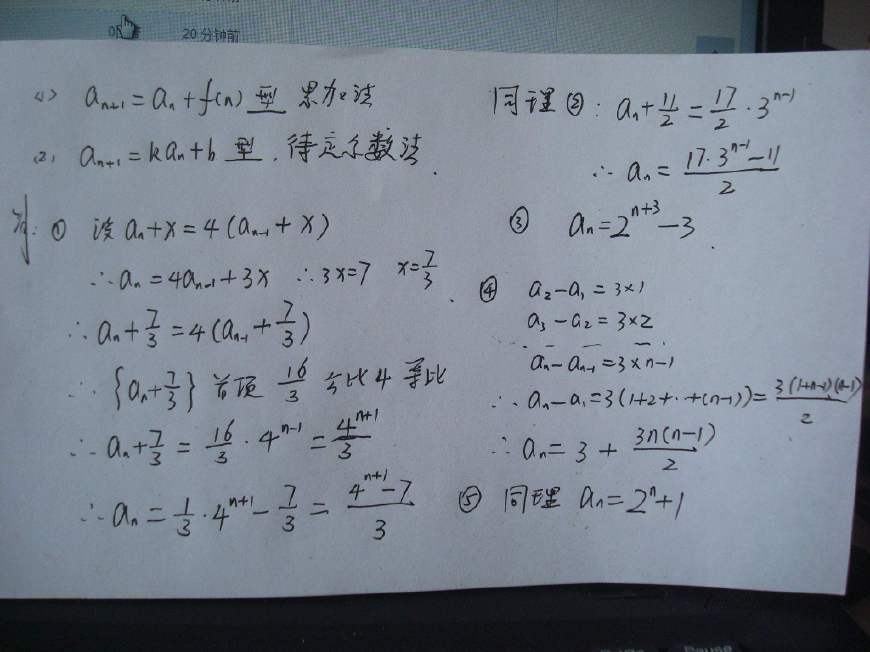 20分钟前
(1) aₙ₊₁ = aₙ + f(n) 型 累加法
(2) aₙ₊₁ = kaₙ + b 型, 待定系数法.
例: ① 设 aₙ + x = 4(aₙ₋₁ + x)
∴ aₙ = 4aₙ₋₁ + 3x ∴ 3x = 7 x = 7/3
∴ aₙ + 7/3 = 4(aₙ₋₁ + 7/3)
∴ {aₙ + 7/3} 首项 16/3 公比 4 等比
∴ aₙ + 7/3 = 16/3 · 4ⁿ⁻¹ = 4ⁿ⁺¹/3
∴ aₙ = 1/3 · 4ⁿ⁺¹ − 7/3 = (4ⁿ⁺¹ − 7)/3
同理②: aₙ + 11/2 = 17/2 · 3ⁿ⁻¹
∴ aₙ = (17·3ⁿ⁻¹ − 11)/2
③ aₙ = 2ⁿ⁺³ − 3.
④ a₂ − a₁ = 3×1
a₃ − a₂ = 3×2
aₙ − aₙ₋₁ = 3×n−1
∴ aₙ − a₁ = 3(1+2+··+(n−1)) = 3(1+n−1)(n−1)/2
∴ aₙ = 3 + 3n(n−1)/2
⑤ 同理 aₙ = 2ⁿ + 1